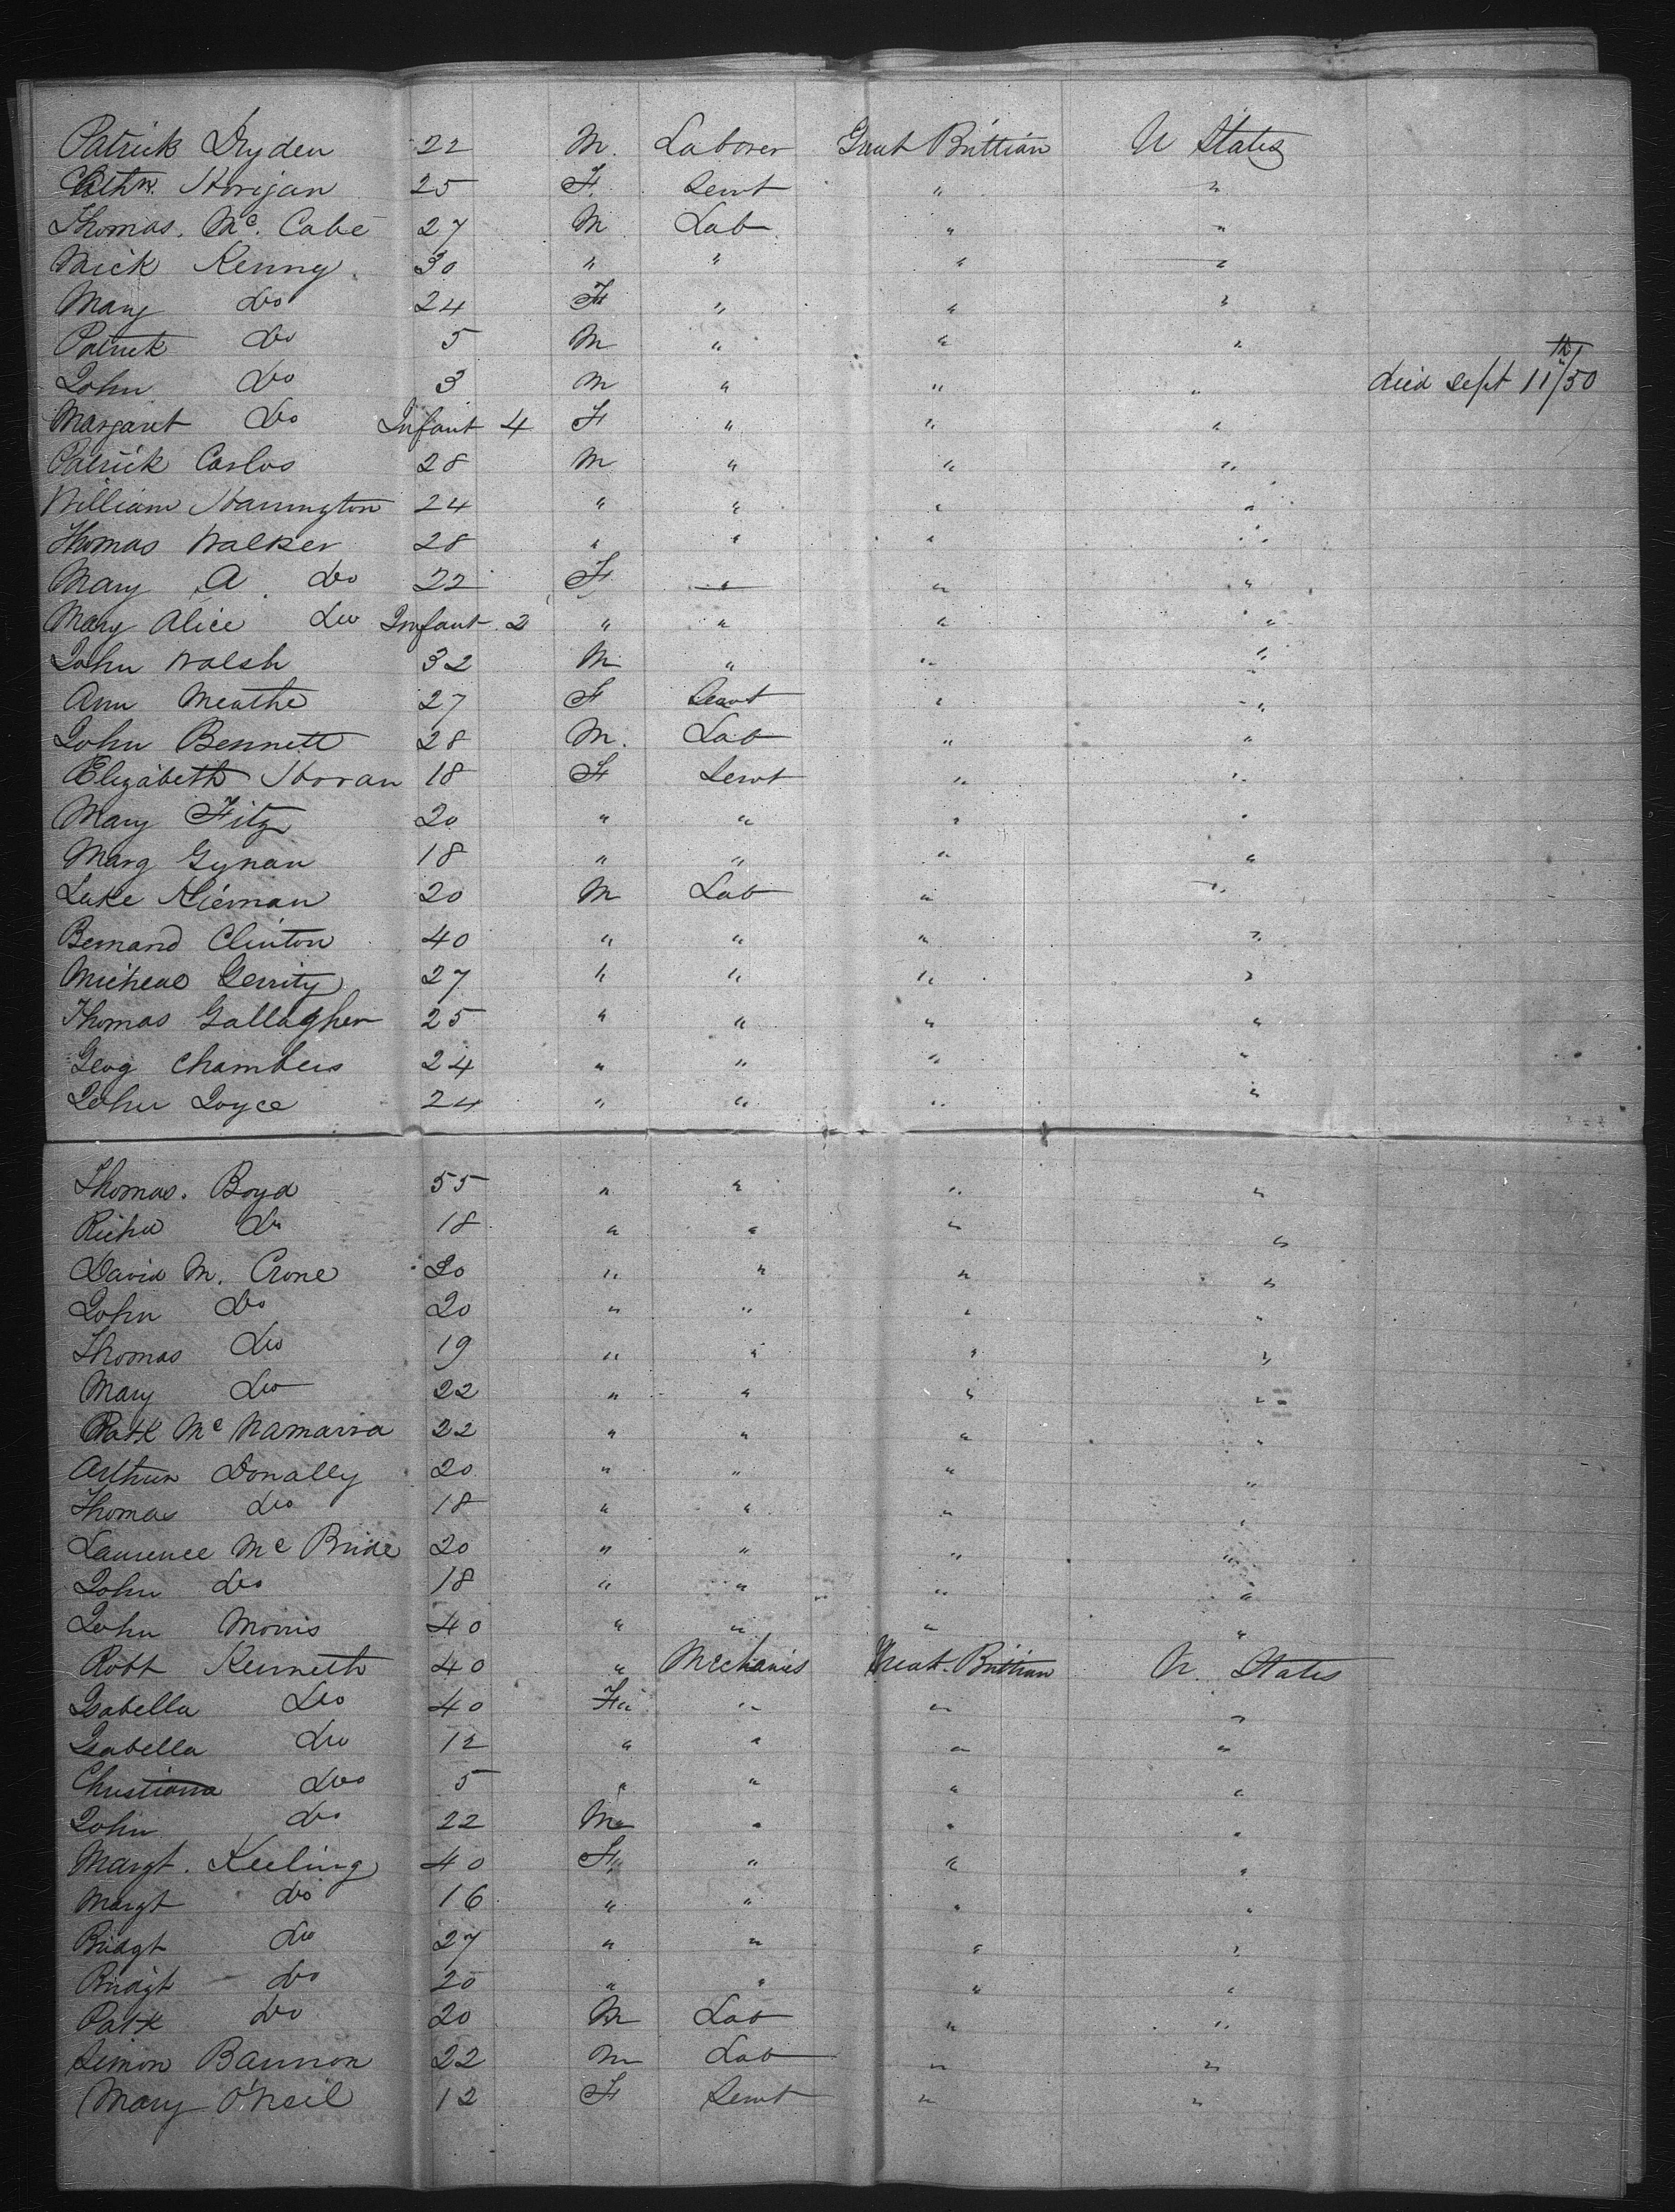 Patrick Dryden 22 M. Laborer Great Brittian U States
Cathn. Horigan 25 F. Servt " "
Thomas. Mc. Cabe 27 M Lab " "
Mick Kenny. 30 " " " "
Mary Do 24 F " " "
Patrick Do 5 M " " "
John Do 3 M " " " died sept 11th/50
Margaret Do Infant 4 F " " "
Patrick Carlos 28 M " " "
William Harrington 24 " " " "
Thomas Walker 28 " " " "
Mary A. Do 22 F " " "
Mary Alice Do Infant. 2 " " " "
John Walsh 32 M " " "
Ann Meathe 27 F Servt " "
John Bennett 28 M. Lab " "
Elizabeth Horan 18 F Servt " "
Mary Fitz 20 " " " "
Marg Gynan 18 " " " "
Luke Kiernan 20 M Lab " "
Bernard Clinton 40 " " " "
Micheal Gerrity 27 " " " "
Thomas Gallagher 25 " " " "
Geog Chambers 24 " " " "
John Joyce 24 " " " "
Thomas. Boyd 55 " " " "
Richd Do 18 " " " "
David M. Crone 20 " " " "
John Do 20 " " " "
Thomas Do 19 " " " "
Mary Do 22 " " " "
Patk Mc Namarra 22 " " " "
Arthur Donally 20 " " " "
Thomas Do 18 " " " "
Laurence Mc Bride 20 " " " "
John Do 18 " " " "
John Morris 40 " " " "
Robt Kenneth 40 " Mechanic Great. Brittian U. States
Isabella Do 40 F " " "
Isabella Do 12 " " " "
Christiana Do 5 " " " "
John Do 22 M " " "
Margt. Keeling 40 F " " "
Margt Do 16 " " " "
Bridgt Do 27 " " " "
Bridgt Do 20 " " " "
Patk Do 20 M Lab " "
Simon Bannon 22 M Lab " "
Mary O'Neil 12 F Servt " "